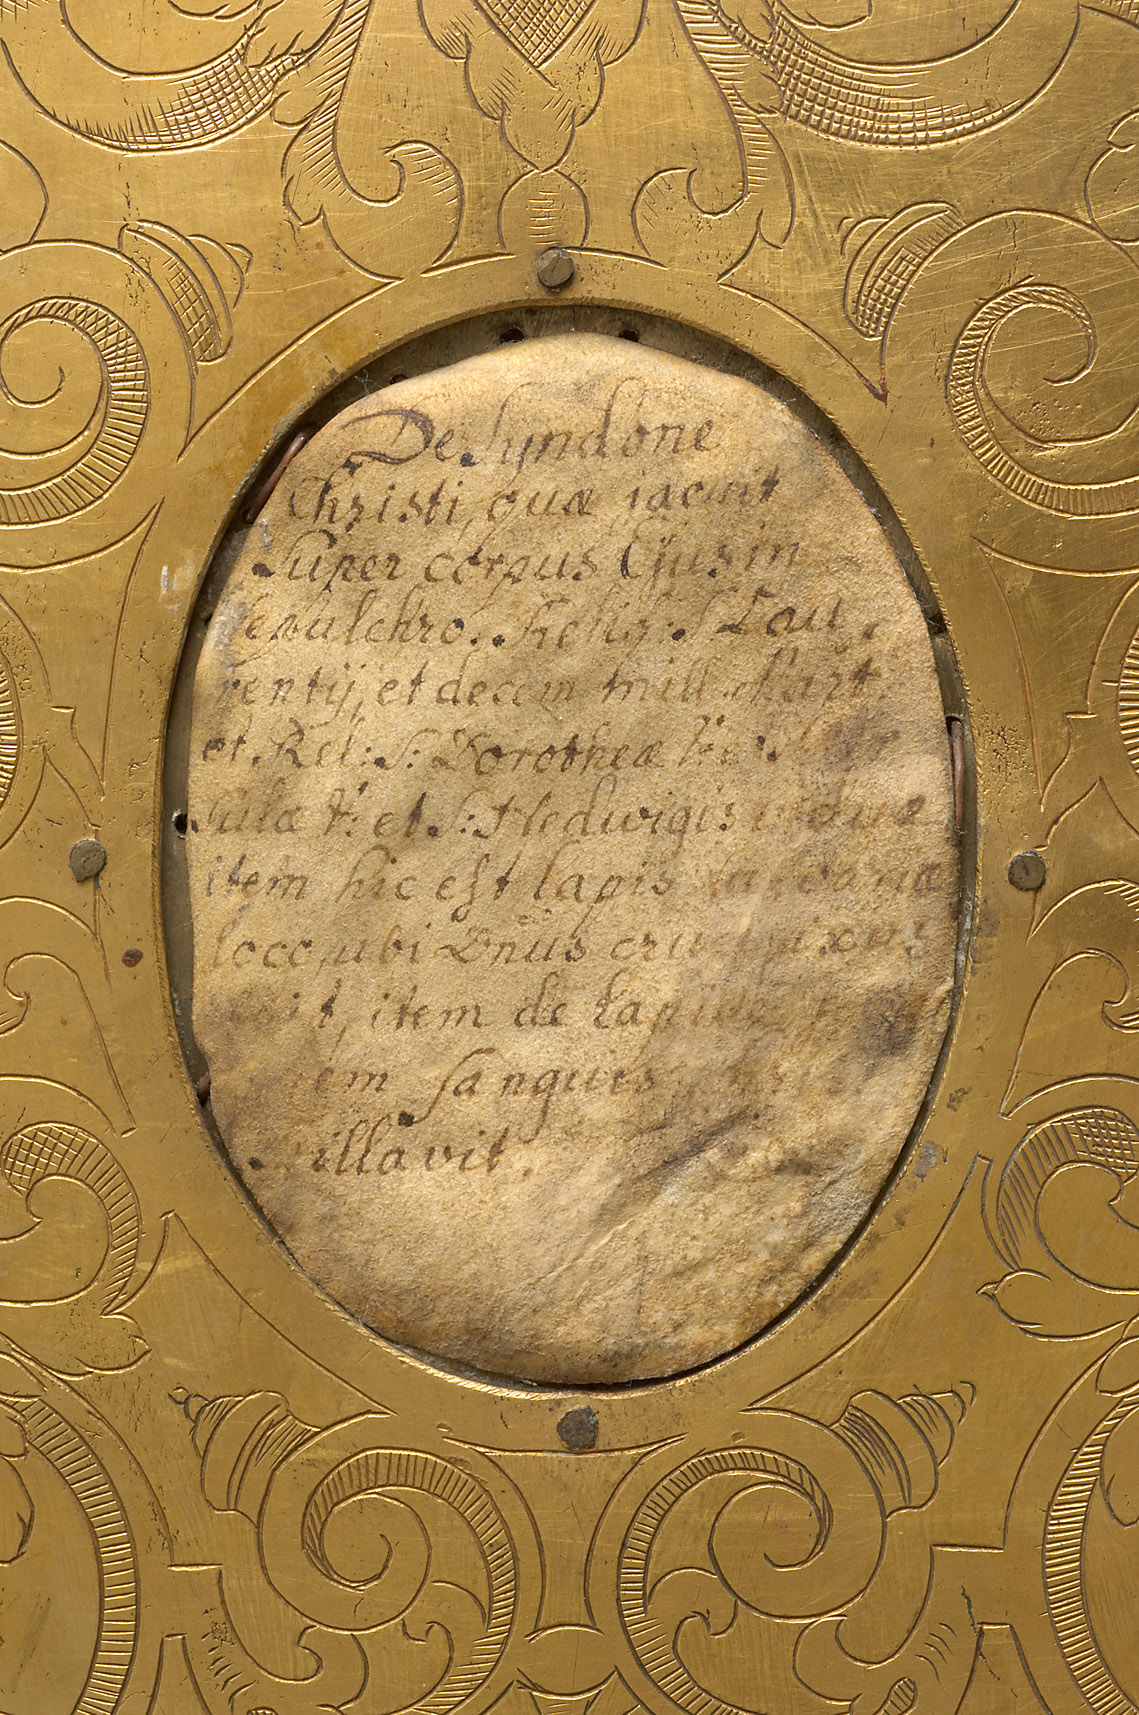 De Syndone
Christi, quæ jacuit
Super corpus Ejus in
Sepulchro. Reliq: S Lau
rentij, et decem mill. Mart.
et Rel: S: Dorotheæ V:
sulæ V: et S: Hedwigis viduæ
item hic est lapis
loco, ubi Dnus crucifixus
fuit, item de Lapide
sanguis
stillavit.